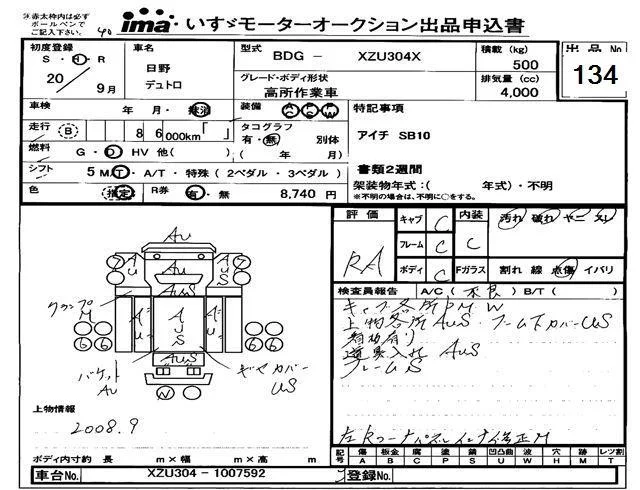 ※赤太枠内は必ず
ボールペンで
ご記入下さい。
ima いすゞモーターオークション出品申込書
初度登録 S・H・R 20年 9月
車名 日野 デュトロ
型式 BDG - XZU304X
積載 (kg) 500
出品No 134
グレード・ボディ形状 高所作業車
排気量 (cc) 4,000
車検 年・月・抹消
装備 AC PS PW
特記事項
走行 B 86,000km「 」
タコグラフ 有・無 別体
( 年 月)
アイチ SB10
燃料 G・D HV 他( )
書類2週間
シフト 5 MT・A/T・特殊(2ペダル・3ペダル)
架装物年式:( 年式)・不明
※不明の場合は、不明に○をする。
色 指定 R券 有・無 8,740 円
評価 RA
キャブ C 内装 C 汚れ 破れ ヤニ スレ
フレーム C
ボディ C Fガラス 割れ 線 点傷 イバリ
検査員報告 A/C(不良) B/T( )
キャブ各所 P M W
上物各所 AUS・アーム下カバーUS
道具入れ AUS
フレームS
AU
AU
S
AUS
クランプ
M
AUS
AUS
バケット
AU
ギヤカバー
US
7
7
6 6
6 6
W
上物情報
2008.9
ボディ内寸約 長 m×幅 m×高 m
記号 傷 A 板金 B 腐 C 塗 P 錆 S 凹凸曲 U 波 W 穴 H 跡 M レツ割 T
車台No. XZU304-1007592
登録No.